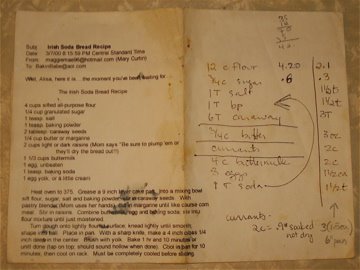 Subj: Irish Soda Bread Recipe
Date: 3/7/00 8:15:59 PM Central Standard Time
From: maggiemae96@hotmail.com (Mary Curtin)
To: BakinBabe@aol.com
Well, Alisa, here it is... the moment you've been waiting for...
The Irish Soda Bread Recipe
4 cups sifted all-purpose flour
1/4 cup granulated sugar
1 teasp. salt
1 teasp. baking powder
2 tablesp. caraway seeds
1/4 cup butter or margarine
2 cups light or dark raisins (Mom says "Be sure to plump 'em or
they'll dry the bread out!!!)
1 1/3 cups buttermilk
1 egg, unbeaten
1 teasp. baking soda
1 egg yolk, or a little cream
Heat oven to 375. Grease a 9 inch layer cake pan. Into a mixing bowl
sift flour, sugar, salt and baking powder; stir in caraway seeds. With
pastry blender (Mom uses her hands), cut in margarine until like course corn
meal. Stir in raisins. Combine buttermilk, egg and baking soda; stir into
flour mixture until just moistened.
Turn dough onto lightly floured surface; knead lightly until smooth;
shape into ball. Place in pan. With a sharp knife, make a 4 inch cross 1/4
inch deep in the center. Brush with yolk. Bake 1 hr and 10 minutes or
until done (tap on top; should sound hollow when done). Cool in pan for 10
minutes, then cool on rack. Must be completely cooled before slicing
12 c flour 4.20 2.1
3/4 c sugar .6 .3
1T salt
1T bp
6T caraway 3T
3/4 c butter
currants 3c
4c buttermilk 2c
3 eggs
1T soda
currants
2c = .9# soaked
not dry